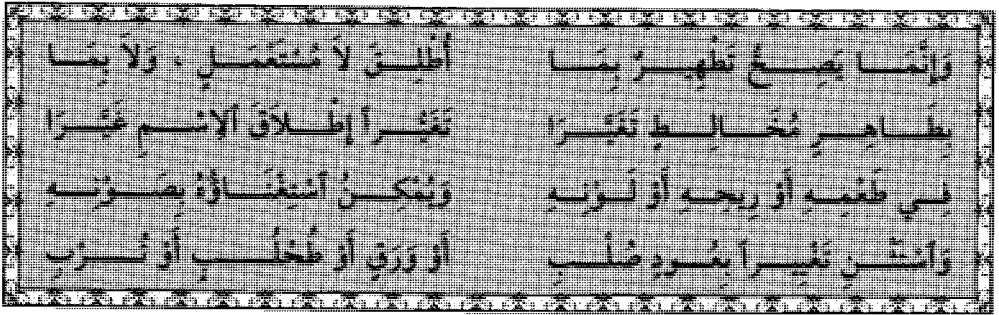 وَإِنَّمَا يَصِحُّ تَطْهِيرٌ بِمَا أُطْلِقَ لاَ مُسْتَعْمَلٍ ، وَلاَ بِمَا
بِطَاهِرٍ مُخَالِطٍ تَغَيَّرَا تَغَيُّراً إِطْلاَقَ ٱلاِسْمِ غَيَّرَا
فِي طَعْمِهِ أَوْ رِيحِهِ أَوْ لَوْنِهِ وَيُمْكِنُ ٱسْتِغْنَاؤُهُ بِصَوْنِهِ
وَٱسْتَثْنِ تَغْيِيراً بِعُودٍ صُلْبِ أَوْ وَرَقٍ أَوْ طُحْلُبٍ أَوْ تُرْبِ